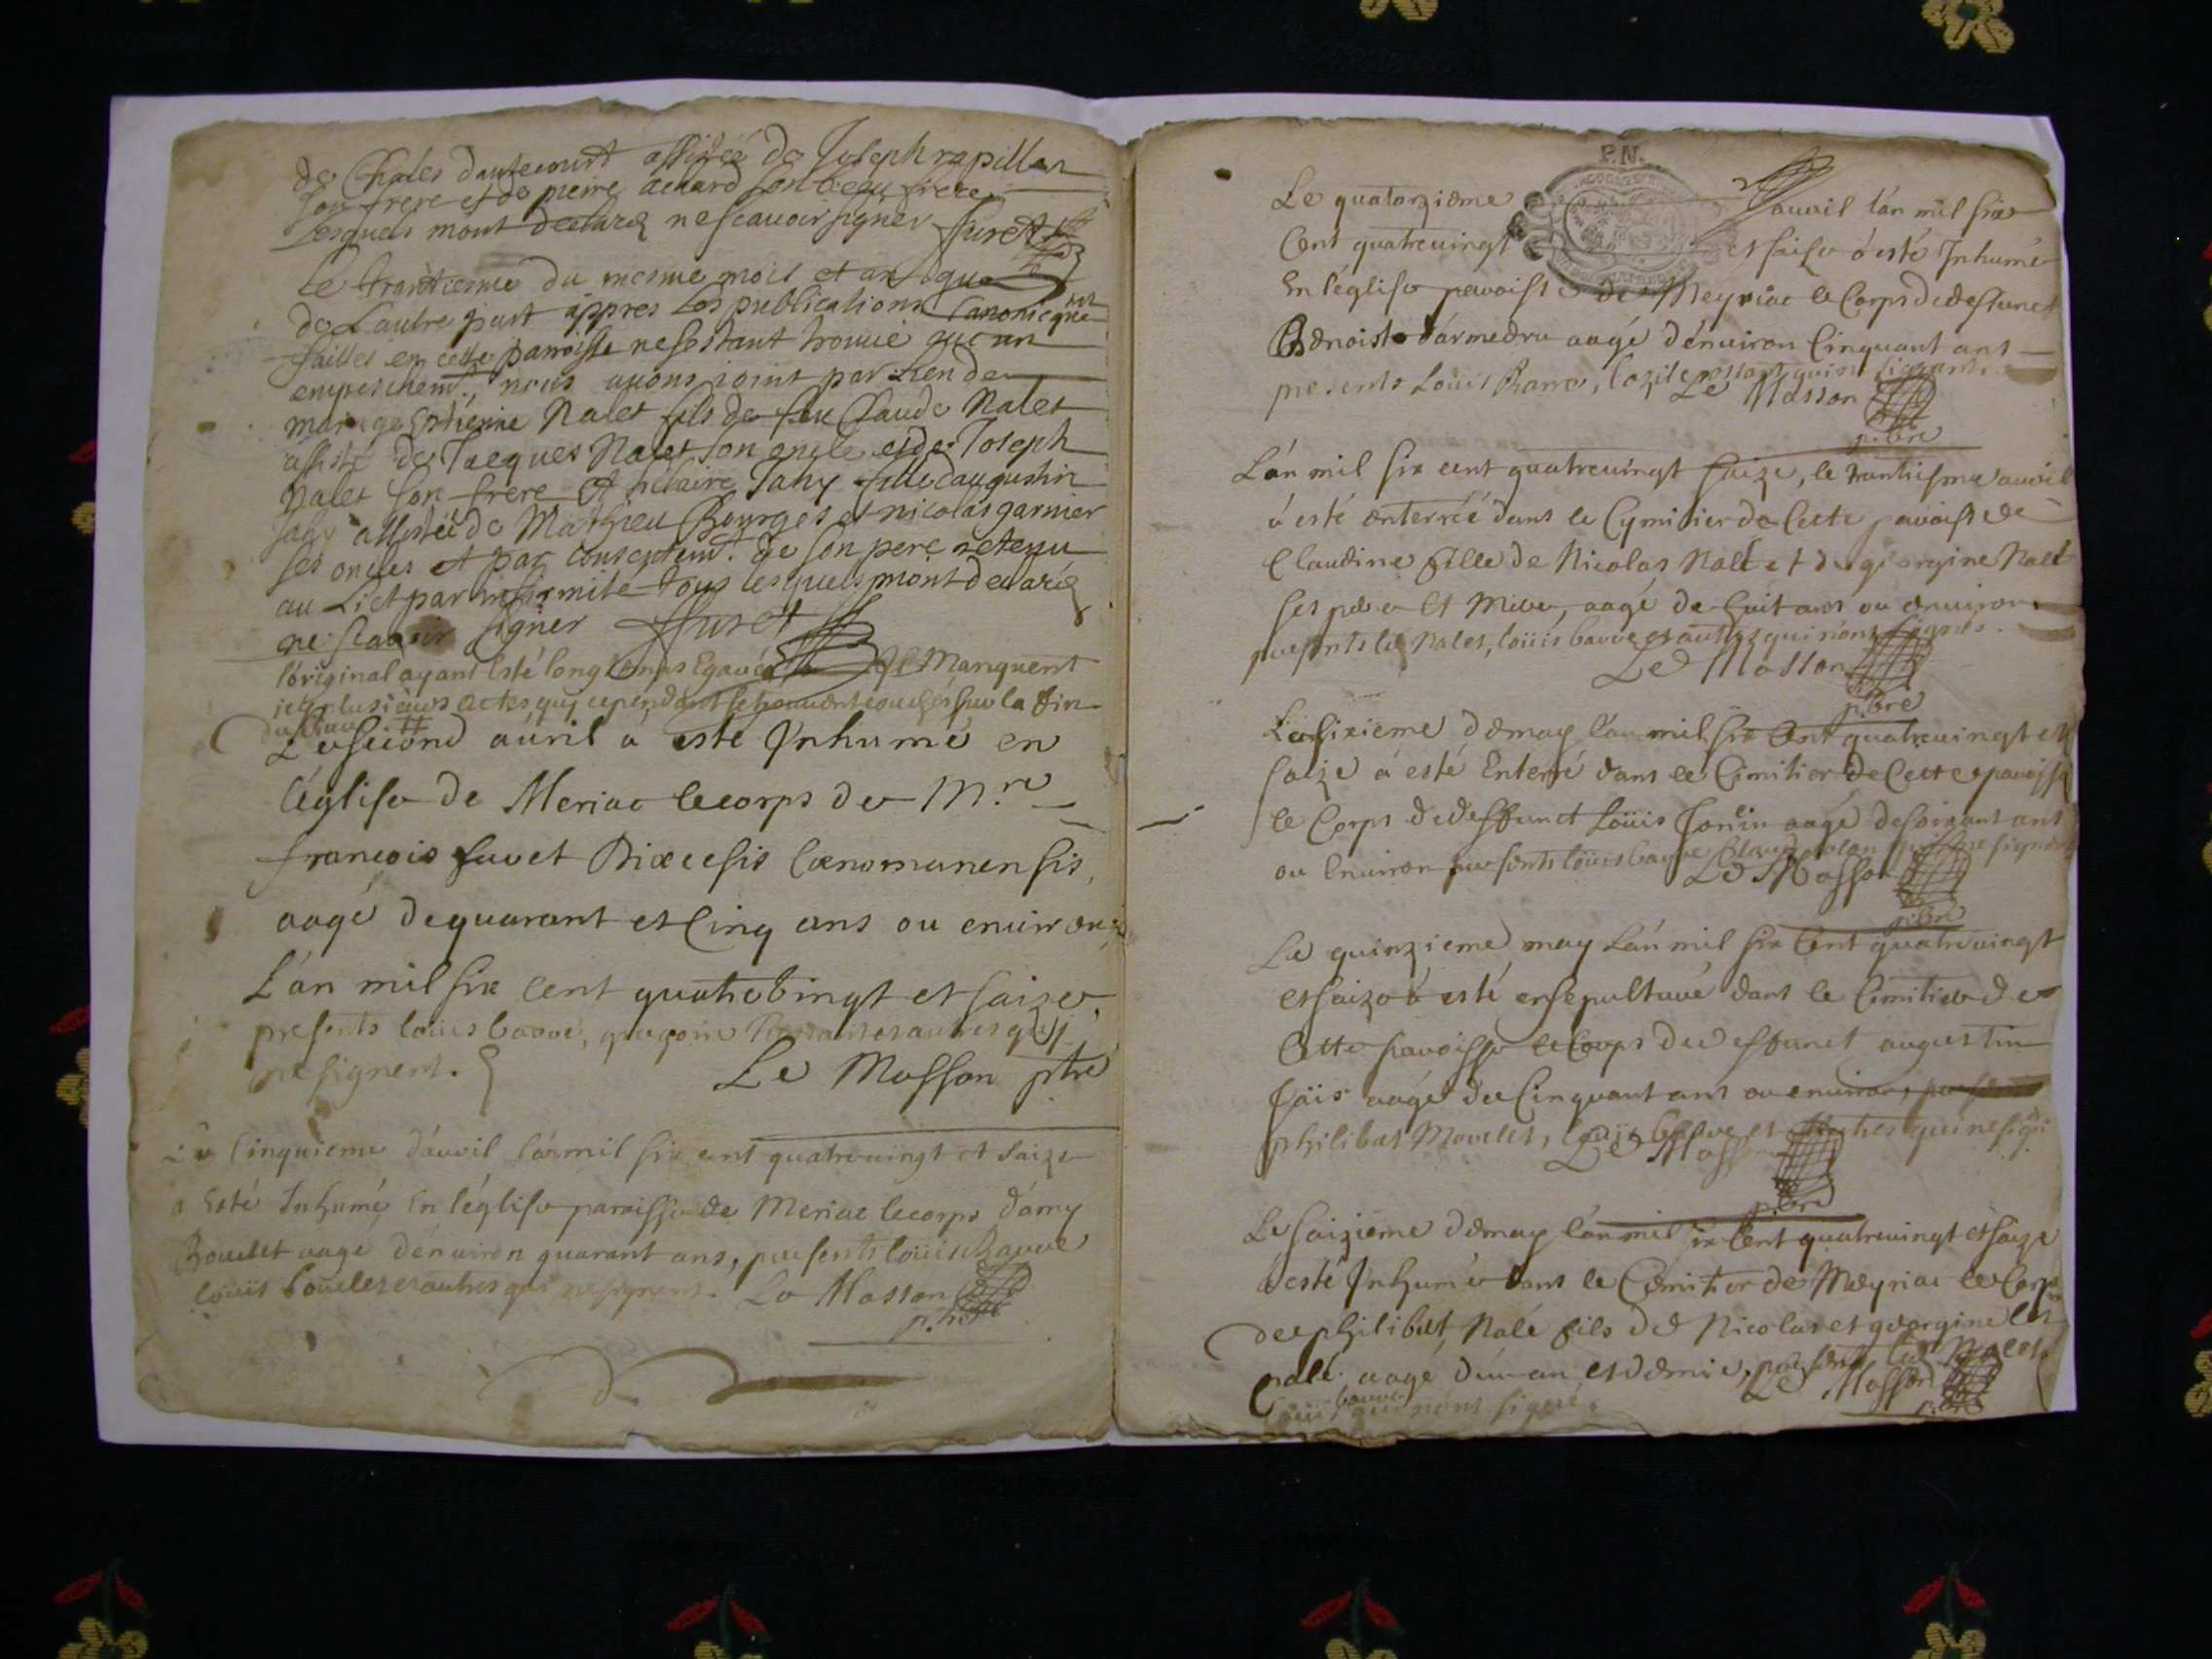 de Charles dautecourt assistée de Joseph rapillar
son frere et de pierre accard son beau frere
Lesquels mont declaré ne scauoir signer ffuret
Le trantiesme du mesme mois et an que
de Lautre part appres Les publications Canonique
faittes em cette parroisse nesestant trouué aucun
empeschemt., nous auons joint par Lien de
mariage Estienne Nalet fils de feu Claude Nalet
assisté de Jacques Nalet son oncle et de Joseph
Nalet son frere Et hilaire Jahy fille daugustin
Jahy assistée de Mathieu Bourges et nicolas garnier
ses oncles et par consentemt. de son pere retenu
au Lict par infirmité tous lesquels mont declaré
ne scauoir signer ffuret
l'original ayant Esté longtemps Egaué il Manquent
icy plusieurs actes quj cependant se trouuent couchés sur la fin
Le second auril a esté Inhumé en
l'église de Meriac le corps de Mre
francois fuvet Diœcesis Cœnomanensis,
aagé de quarant et Cinq ans ou enuiron
L'an mil six cent quatrebingt et saize,
presents loüis bavve, et autres quj
ne signent. Le Masson ptre
Le Cinquieme d'auvil l'an mil six cent quatreuingt et saize
a Esté Inhumé En l'église paroisse de Meriac le corps d'amy
Bouilet aagé d'enuiron quarant ans, presents loüis Bavve
loüis bouilet et autres qui ne signent. Le Masson
p.bre
P.N.
Le quatorzieme auvil l'an mil six
Cent quatreuingt et saize a esté Inhumé
En l'église pavoisse de Meyriac le Corps de deffunct
Benoist d'armedru aagé d'enuiron Cinquant ans
presents Loüis Barve, Le Masson
p.bre
L'an mil six cent quatreuingt saize, le trantiesme auvil
a esté enterréé dans le Cymitier de Cette pavoisse
Claudine fille de Nicolas Nalet et de georgine Nalet
ses peve et Meve, aagé de huit ans ou enuiron
presents les Nalet, loüis bavve et autres qui n'ont signés.
Le Masson
p.bre
Le sixieme de may l'an mil six Cent quatreuingt et
saize a esté Enterré dans le Cimitier de Cette pavoisse
le Corps de deffunct Loüis Jonin aagé de soixant ans
ou Enuiron presents loüis bavve
Le Masson
p.bre
Le quinzieme may L'an mil six Cent quatreuingt
et saize a esté ensepultuvé dans le Cimitiev de
Cette pavoisse le Covps de deffunct augustin
Jaïs aagé de Cinquant ans ou enuiron, presents
philibet Movelet, Loüis bavve et autres qui ne sign
Le Masson
p.bre
Le saizieme de may l'an mil six Cent quatreuingt et saize
a esté Inhumé dans le Cemitier de Meyriac le Corps
de philibet Nalé fils de Nicolas et georgine les
nalé aagé d'un an et demie, presents les Nalet,
Loüis bavve qui n'ont signé. Le Masson
p.bre